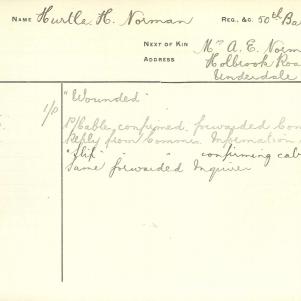 NAME Hurtle. H. Norman REG. &C. 50th Ba
NEXT OF KIN Mrs A. E. Norm
ADDRESS Holbrook Roa
Underdale
1/P "Wounded"
P/Cable, confirmed, forwarded Con
Reply from Commrs. Information
"flix" " " confirming cab
Same forwarded Inquirer